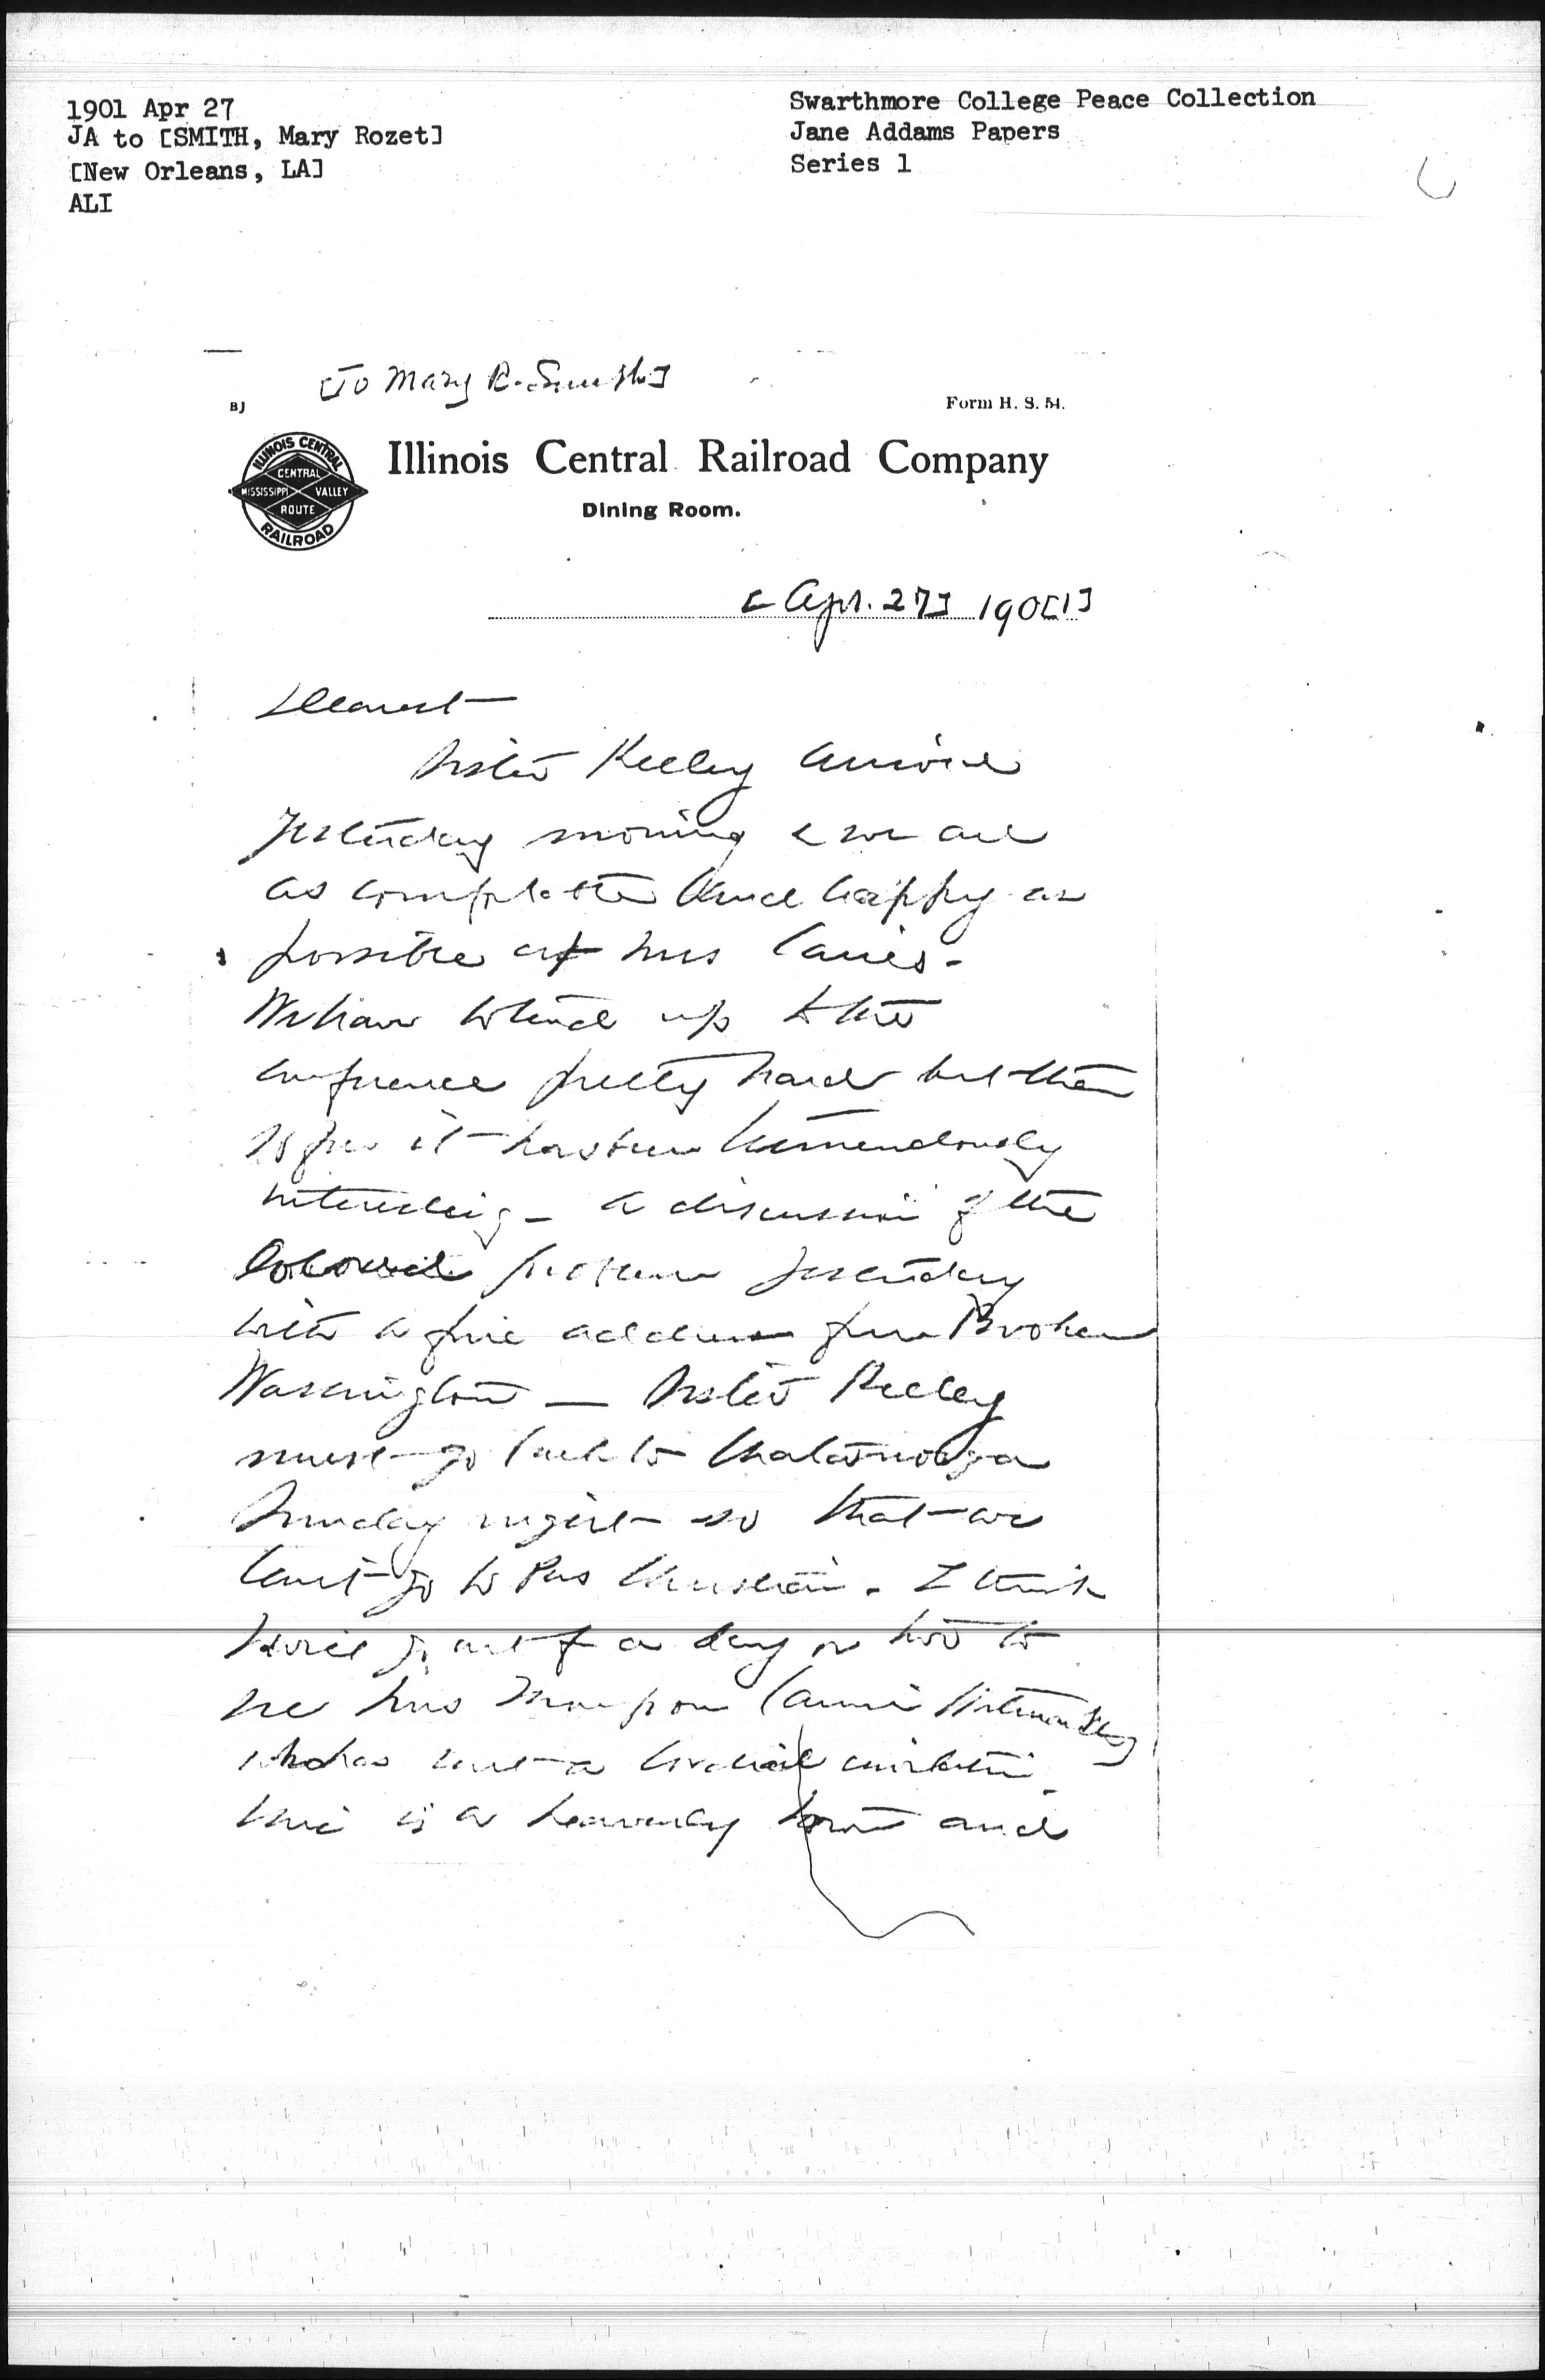 1901 Apr 27
JA to [SMITH, Mary Rozet]
[New Orleans, LA]
ALI
Swarthmore College Peace Collection
Jane Addams Papers
Series 1
[To Mary R. Smith]
BJ
Form H. S. 54.
ILLINOIS CENTRAL
CENTRAL
MISSISSIPPI VALLEY
ROUTE
RAILROAD
Illinois Central Railroad Company
Dining Room.
[Apr. 27] 190[1]
Dearest
Sister Kelley arrived
yesterday morning & we are
as comfortable and happy as
possible at Mrs
We have to tend up to the
conference pretty hard but thus
so far it has been tremendously
interesting - a discussion of the
Colored problem yesterday
with a fine address from Booker
Washington — Sister Kelley
must go back to Chatanooga
Sunday night so that we
can't go to Pass Christian. I think
I will go out for a day or two to
see Mrs Thompson (
who has sent a cordial invitation.
This is a heavenly town and